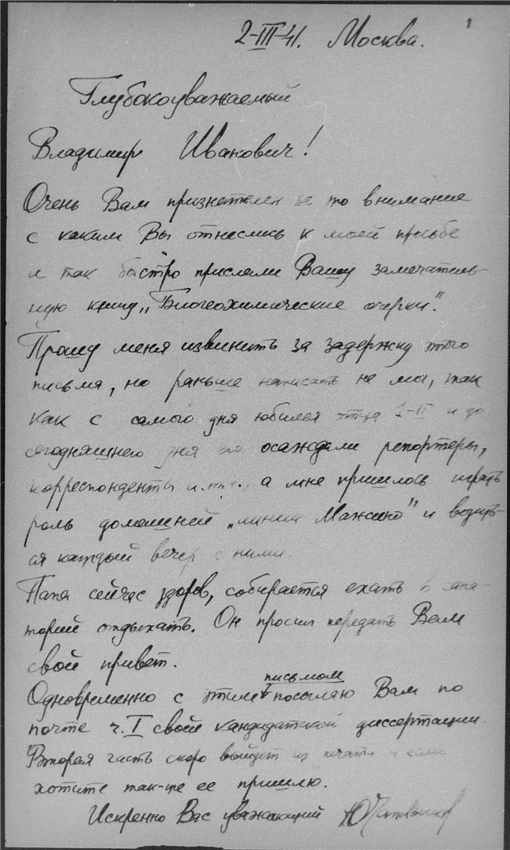 1
2-III-41. Москва.
Глубокоуважаемый
Владимир Иванович!
Очень Вам признателен за то внимание
с каким Вы отнеслись к моей просьбе
и так быстро прислали Вашу замечатель-
ную книгу „Биогеохимические очерки".
Прошу меня извинить за задержку этого
письма, но раньше написать не мог, так
как с самого дня юбилея 1-II и до
сегодняшнего дня его осаждали репортеры,
корреспонденты и.т.д., а мне пришлось играть
роль домашней „линии Мажино" и возить-
ся каждый вечер с ними.
Папа сейчас здоров, собирается ехать в сана-
торий отдыхать. Он просил передать Вам
свой привет.
Одновременно с этим письмом посылаю Вам по
почте ч. I своей кандидатской диссертации.
Вторая часть скоро выйдет из печати и если
хотите так-же ее пришлю.
Искренно Вас уважающий